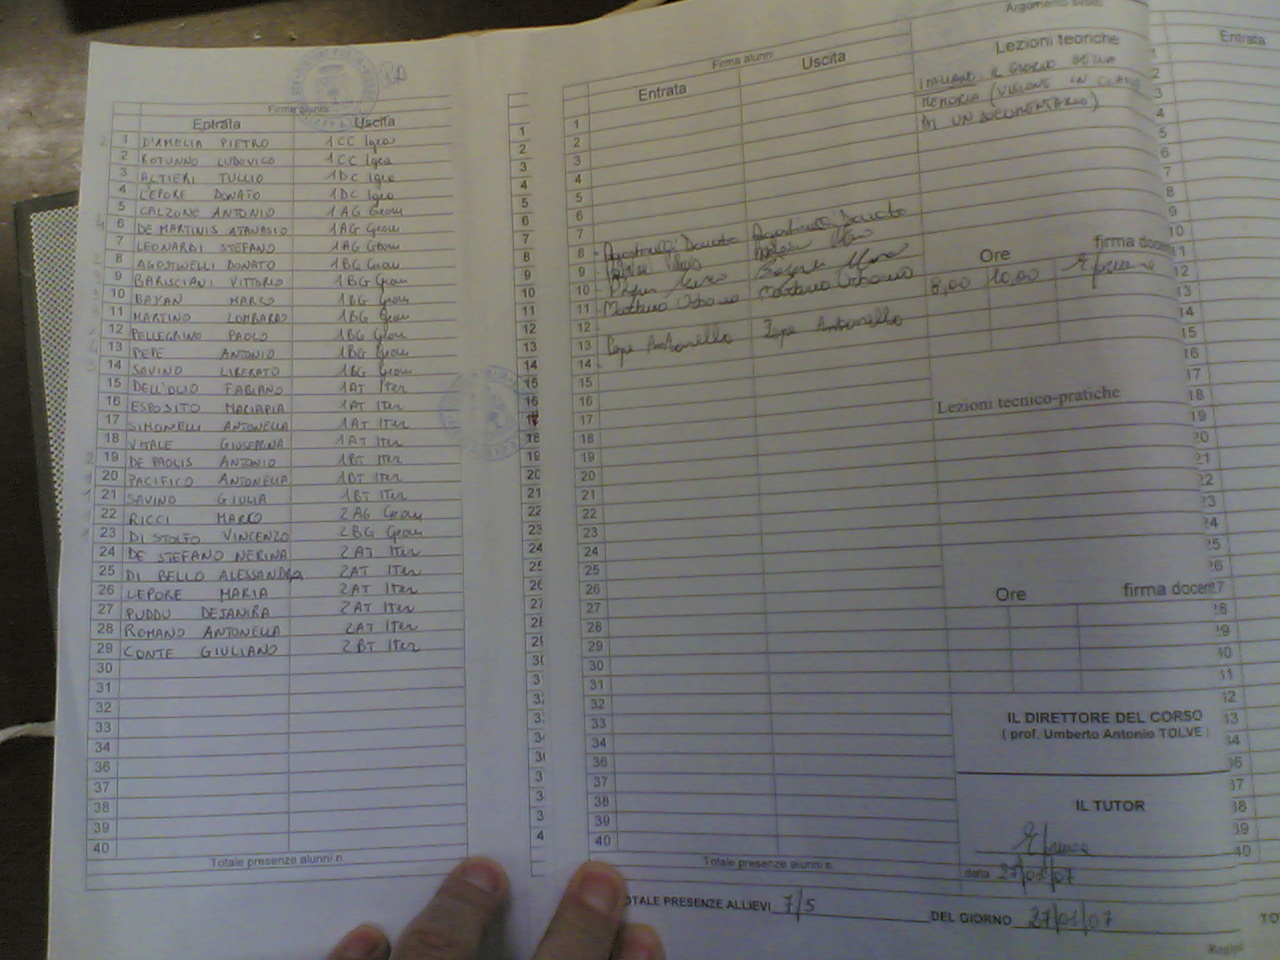 Firma alunni
Entrata Uscita
1 D'AMELIA PIETRO 1CC Igea
2 ROTUNNO LUDOVICO 1CC Igea
3 ALTIERI TULLIO 1DC Igea
4 LEPORE DONATO 1DC Igea
5 CALZONE ANTONIO 1AG Geom
6 DE MARTINIS ATANASIO 1AG Geom
7 LEONARDI STEFANO 1AG Geom
8 AGOSTINELLI DONATO 1BG Geom
9 BARISCIANI VITTORIO 1BG Geom
10 BAYAN MARCO 1BG Geom
11 MARTINO LOMBARDO 1BG Geom
12 PELLEGRINO PAOLO 1BG Geom
13 PEPE ANTONIO 1BG Geom
14 SAVINO LIBERATO 1BG Geom
15 DELL'OLIO FABIANO 1AT Iter
16 ESPOSITO MARIAPIA 1AT Iter
17 SIMONELLI ANTONELLA 1AT Iter
18 VITALE GIUSEPPINA 1AT Iter
19 DE PAOLIS ANTONIO 1BT Iter
20 PACIFICO ANTONELLA 1BT Iter
21 SAVINO GIULIA 1BT Iter
22 RICCI MARCO 2AG Geom
23 DI STOLFO VINCENZO 2BG Geom
24 DE STEFANO NERINA 2AT Iter
25 DI BELLO ALESSANDRA 2AT Iter
26 LEPORE MARIA 2AT Iter
27 PUDDU DEJANIRA 2AT Iter
28 ROMANO ANTONELLA 2AT Iter
29 CONTE GIULIANO 2BT Iter
30
31
32
33
34
36
37
38
39
40
Totale presenze alunni n.
Firma alunni
Entrata Uscita
1
2
3
4
5
6
7
8 Agostinelli Donato Agostinelli Donato
9
10
11
12
13 Pepe Antonello Pepe Antonello
14
15
16
17
18
19
20
21
22
23
24
25
26
27
28
29
30
31
32
33
34
36
37
38
39
40
Totale presenze alunni n.
Lezioni teoriche
ITALIANO: IL GIORNO DELLA
MEMORIA (VISIONE IN CLASSE
DI UN DOCUMENTARIO)
Ore firma docente
8,00 10,00
Lezioni tecnico-pratiche
Ore firma docente
IL DIRETTORE DEL CORSO
( prof. Umberto Antonio TOLVE )
IL TUTOR
data 27/01/07
TOTALE PRESENZE ALLIEVI 7/5 DEL GIORNO 27/01/07
Entrata